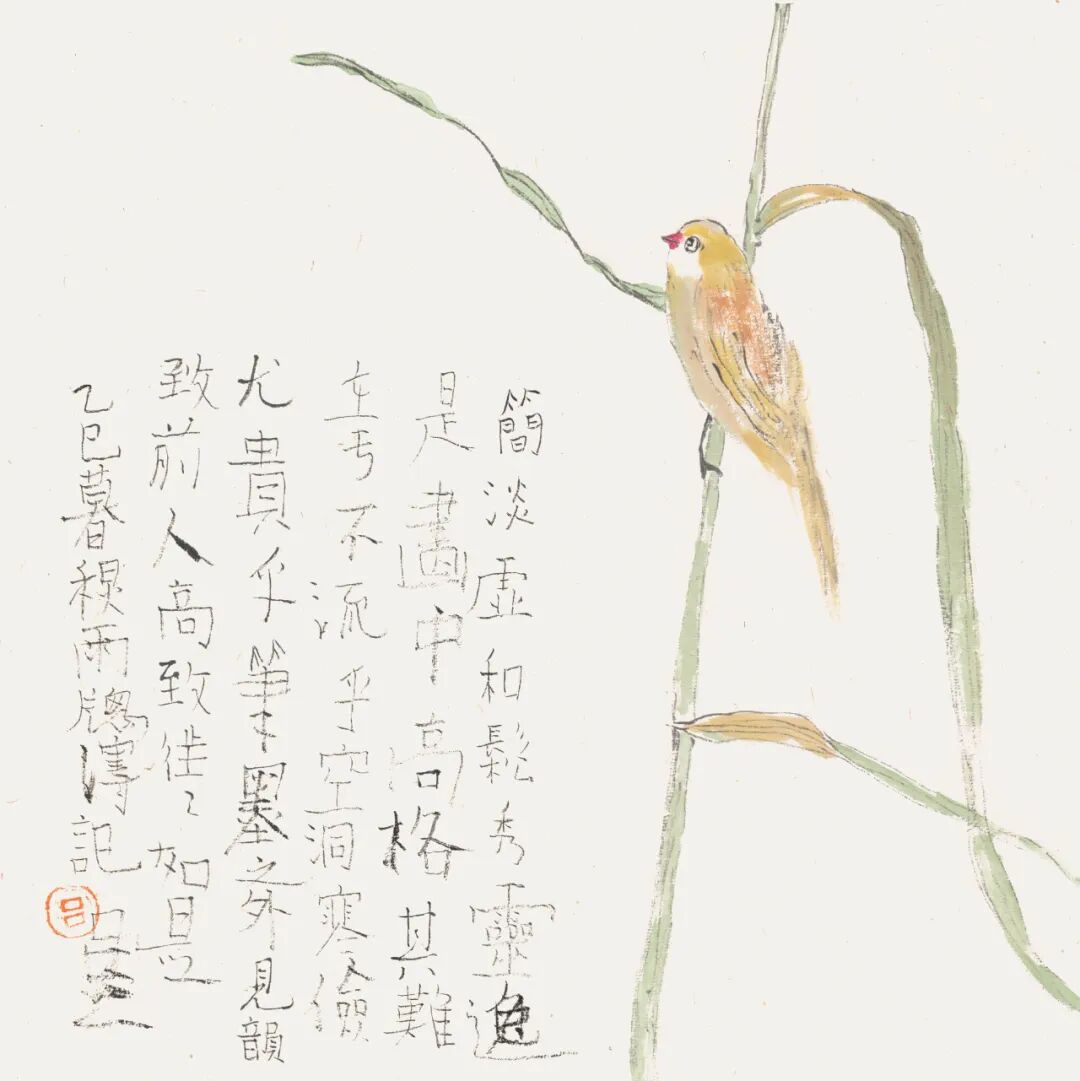 簡淡虛和鬆秀靈逸
是畫中高格其難
在于不流乎空洞寒儉
尤貴乎筆墨之外見韻
致前人高致往〻如是
乙巳暮秋雨牕漙記
呂